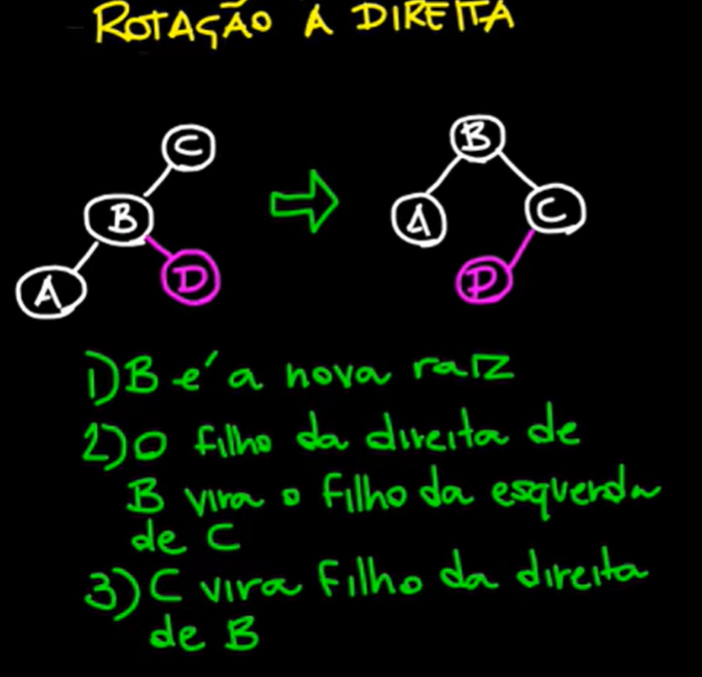 ROTAÇÃO À DIREITA
C
B
A
D
B
A
C
D
1) B é a nova raiz
2) O filho da direita de
B vira o filho da esquerda
de C
3) C vira filho da direita
de B